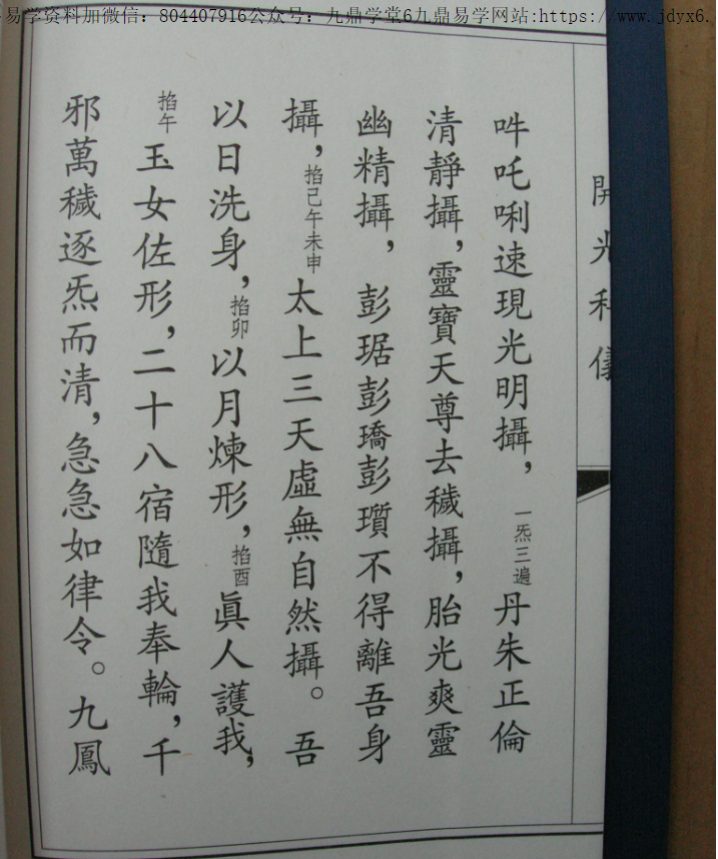 易学资料加微信：804407916公众号：九鼎学堂6九鼎易学网站:https://www.jdyx6.
開光科儀
吽吒唎速現光明攝，一炁三遍丹朱正倫
清靜攝，靈寶天尊去穢攝，胎光爽靈
幽精攝，彭琚彭瑀彭瓆不得離吾身
攝，掐己午未申太上三天虛無自然攝。吾
以日洗身，掐卯以月煉形，掐酉眞人護我，
掐午玉女佐形，二十八宿隨我奉輪，千
邪萬穢逐炁而清，急急如律令。九鳳